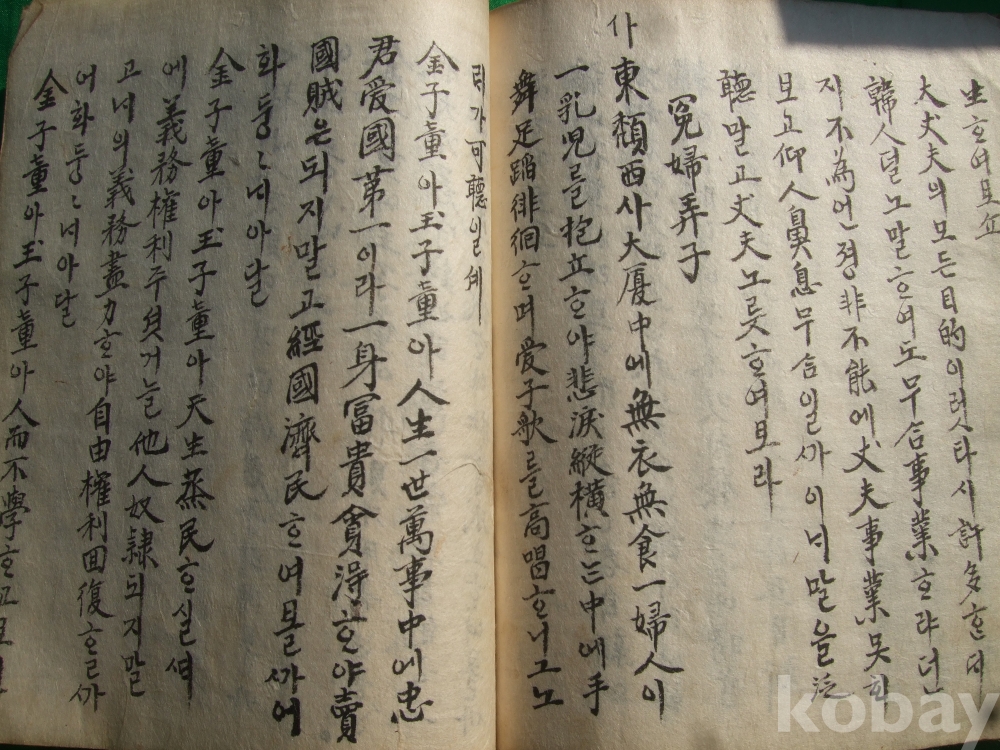 生ᄒᆞ여보고
大丈夫의모든目的이러ᄉᆞ타시許多ᄒᆞᆫ뎌
韓人덜노말ᄒᆞ여도무合事業ᄒᆞ랴던
지不為언졍非不能에丈夫事業못ᄒᆞ
모고仰人鼻息무合일ᄭᅡ이ᄂᆡ말을泛
聽말고丈夫노릇ᄒᆞ여보라
冤婦弄子
사
東頹西사大厦中에無衣無食一婦人이
一乳児를抱立ᄒᆞ야悲淚縱橫ᄒᆞᄂᆞᆫ中에手
舞足蹈徘徊ᄒᆞ며愛子歌를高唱ᄒᆞ니그노
ᄅᆡ가可聽일셰
金子童아玉子童아人生一世萬事中에忠
君愛國第一이라一身冨貴貪淂ᄒᆞ야賣
國賊은되지말고經國濟民ᄒᆞ여볼ᄭᅡ어
화둥〻ᄂᆡ아달
金子童아玉子童아天生蒸民ᄒᆞ실ᄯᆡ
에義務權利주엇거늘他人奴隷되지말
고ᄂᆡ의義務盡力ᄒᆞ야自由權利回復ᄒᆞᆯᄭᅡ
어화둥〻ᄂᆡ아달
金子童아玉子童아人而不學ᄒᆞ고
kobay